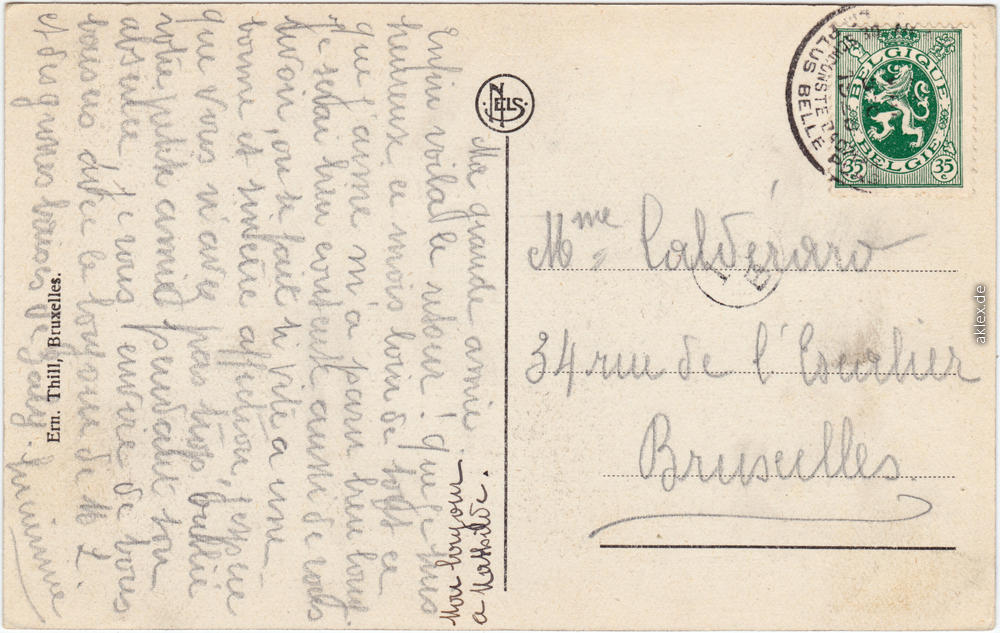 Ma grande amie
Enfin voilà le retour! que je suis
heureux, ce mois loin de tout ce
que j'aime m'a paru bien long
Je serai bien content aussi de vous
revoir, on se fait si vite à une
bonne et sincère affection, j'espère
que vous n'avez pas trop oublié
votre petit ami pendant son
absence. Je vous envoie de bons
baisers de le bonjour de M L
et des grosses baises de
Mon bonjour
a Mathilde.
NELS.
Ern. Thill, Bruxelles.
BELGIQUE
BELGIE
35 c
35 c
PLUS BELLE
Mme Caldérard
1 B
34 rue de l'Escalier
Bruxelles.
aklex.de